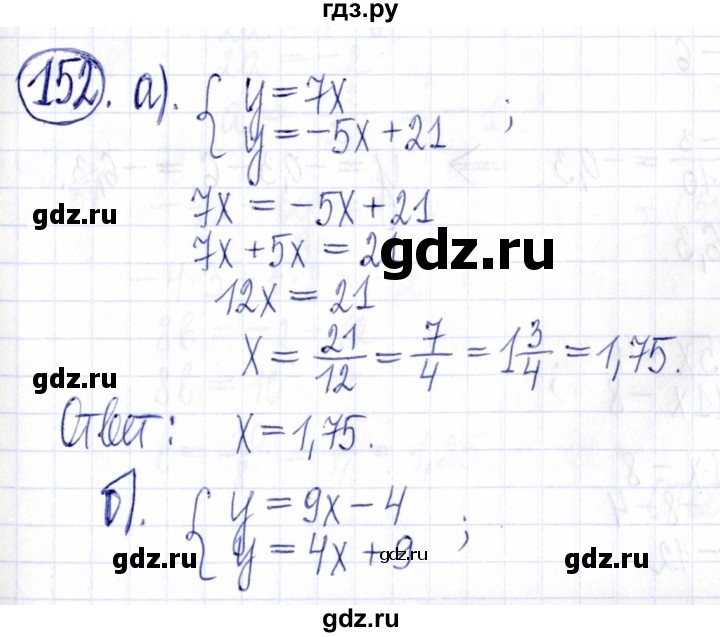 гдз.ру
152. а). { y = 7x
y = -5x + 21 ;
7x = -5x + 21
gdz.ru
7x + 5x = 21
gdz.ru
12x = 21
x = 21/12 = 7/4 = 1 3/4 = 1,75.
gdz.ru
Ответ: x = 1,75.
б). { y = 9x - 4
y = 4x + 9 ;
gdz.ru
gdz.ru
gdz.ru
gdz.ru